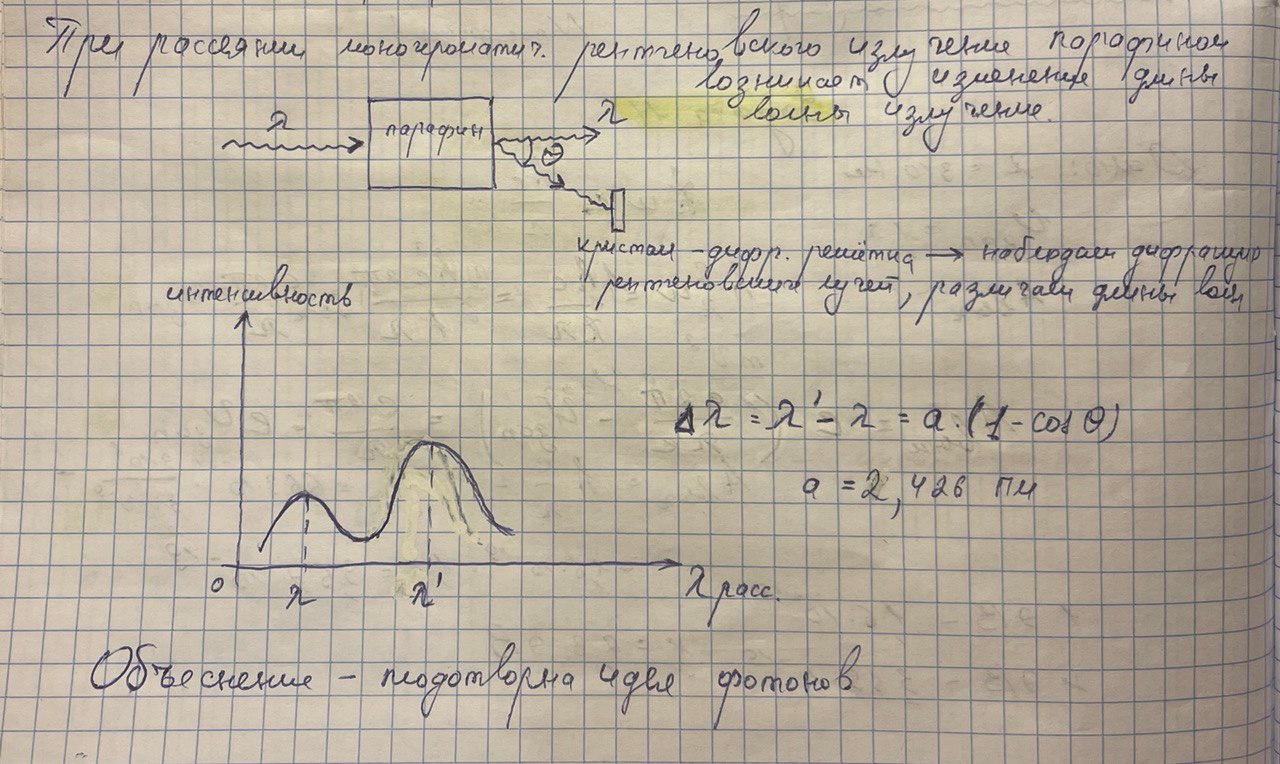 При рассеянии монохроматич. рентгеновского излучения парафином
возникает изменение длины
волны излучения.
λ
парафин
λ
θ
кристалл - дифр. решётка → наблюдаем дифракцию
рентгеновских лучей, различаем длины волн
интенсивность
Δλ = λ' - λ = a·(1 - cos θ)
a = 2,426 пм
0
λ
λ'
λ расс.
Объеснение - плодотворна идея фотонов